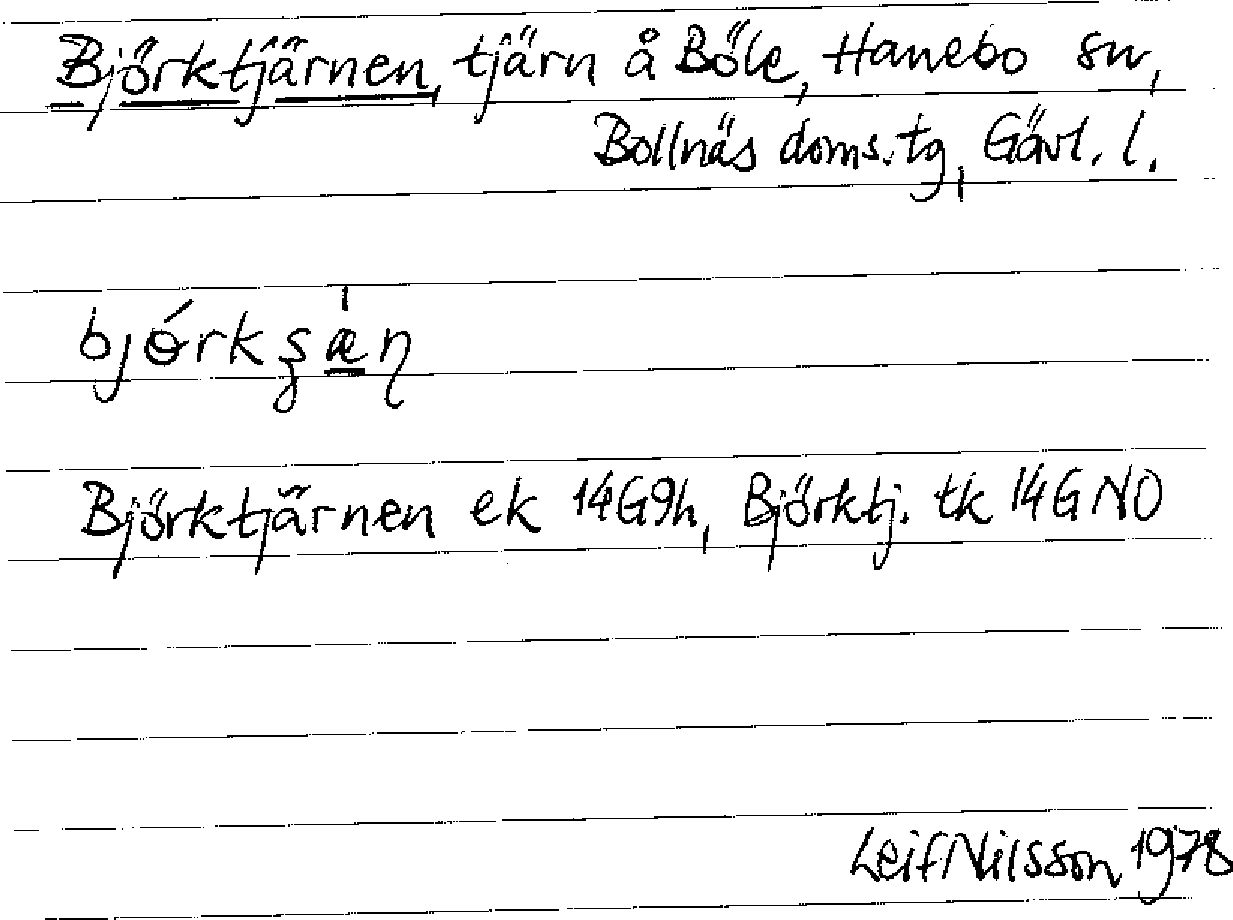 Björktjärnen, tjärn å Böle, Hanebo sn,
Bollnäs doms.tg, Gävl. l.
bjɵ́rkʂæ̠̍ɳ
Björktjärnen ek 14G9h, Björktj. tk 14G NO
Leif Nilsson 1978